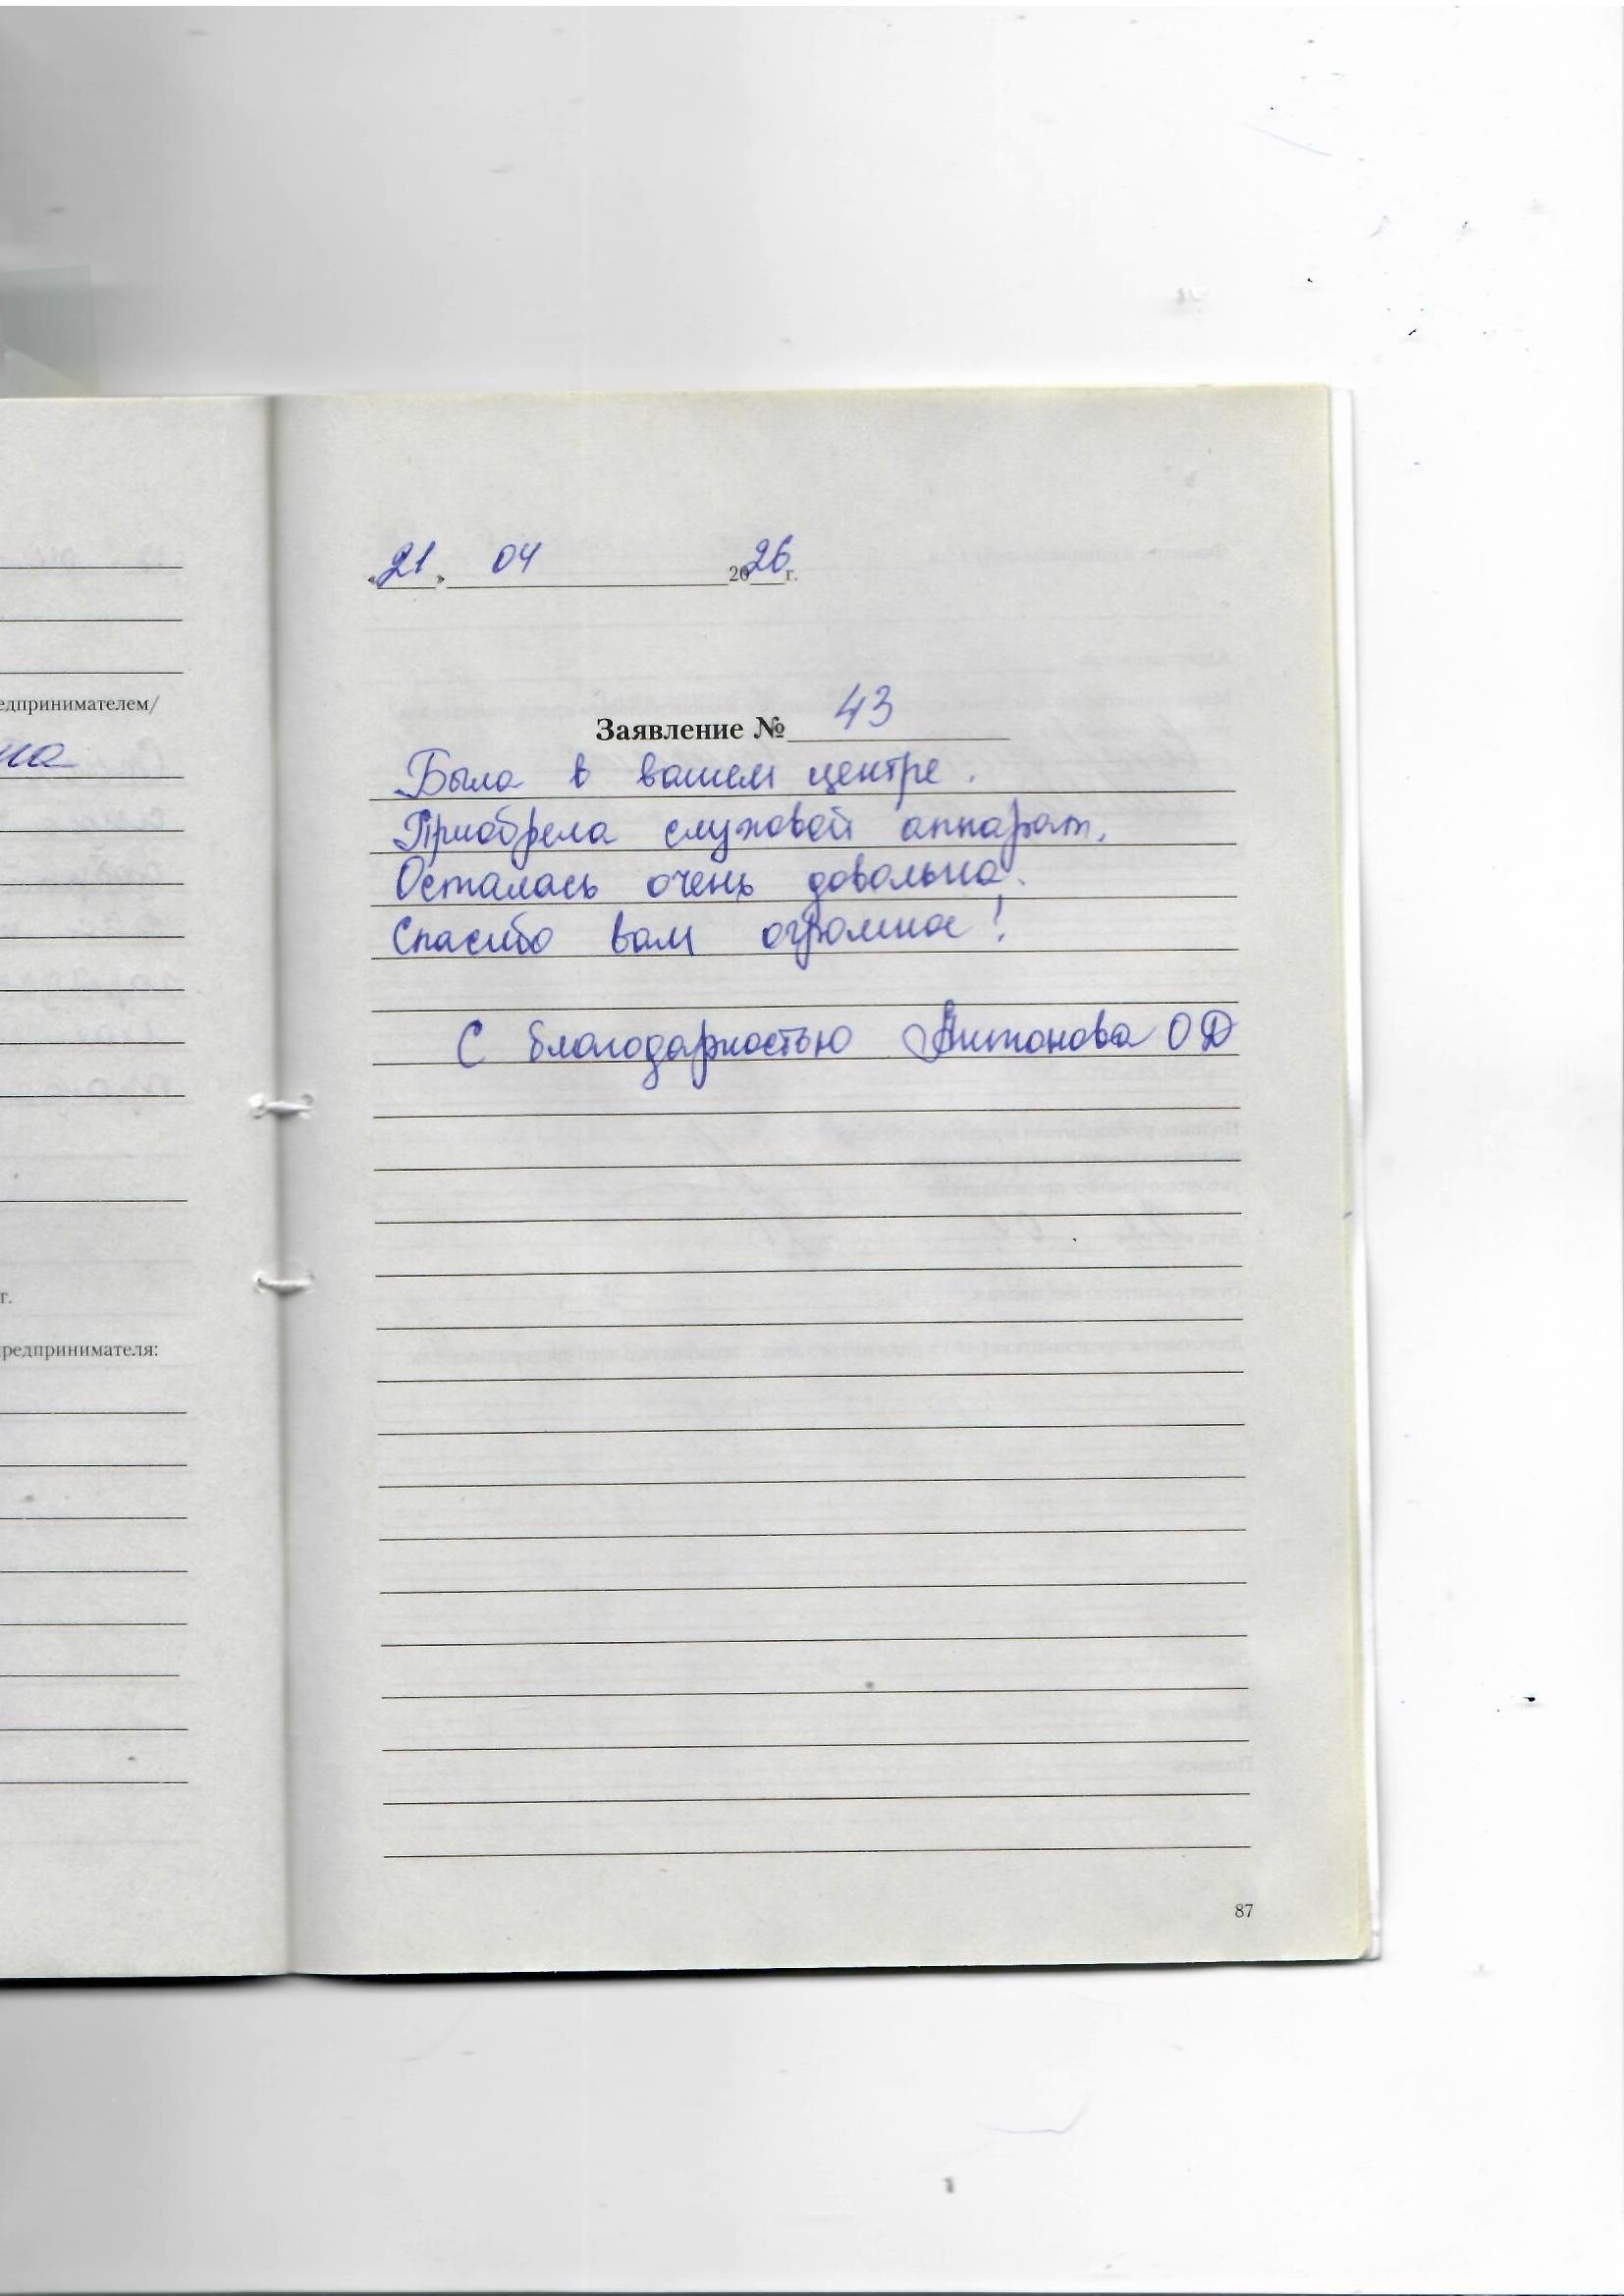 едпринимателем/
на
г.
редпринимателя:
«21» 04 2026 г.
Заявление № 43
Была в вашем центре.
Приобрела слуховой аппарат.
Осталась очень довольна.
Спасибо вам огромное!
С благодарностью Антонова О Д
87